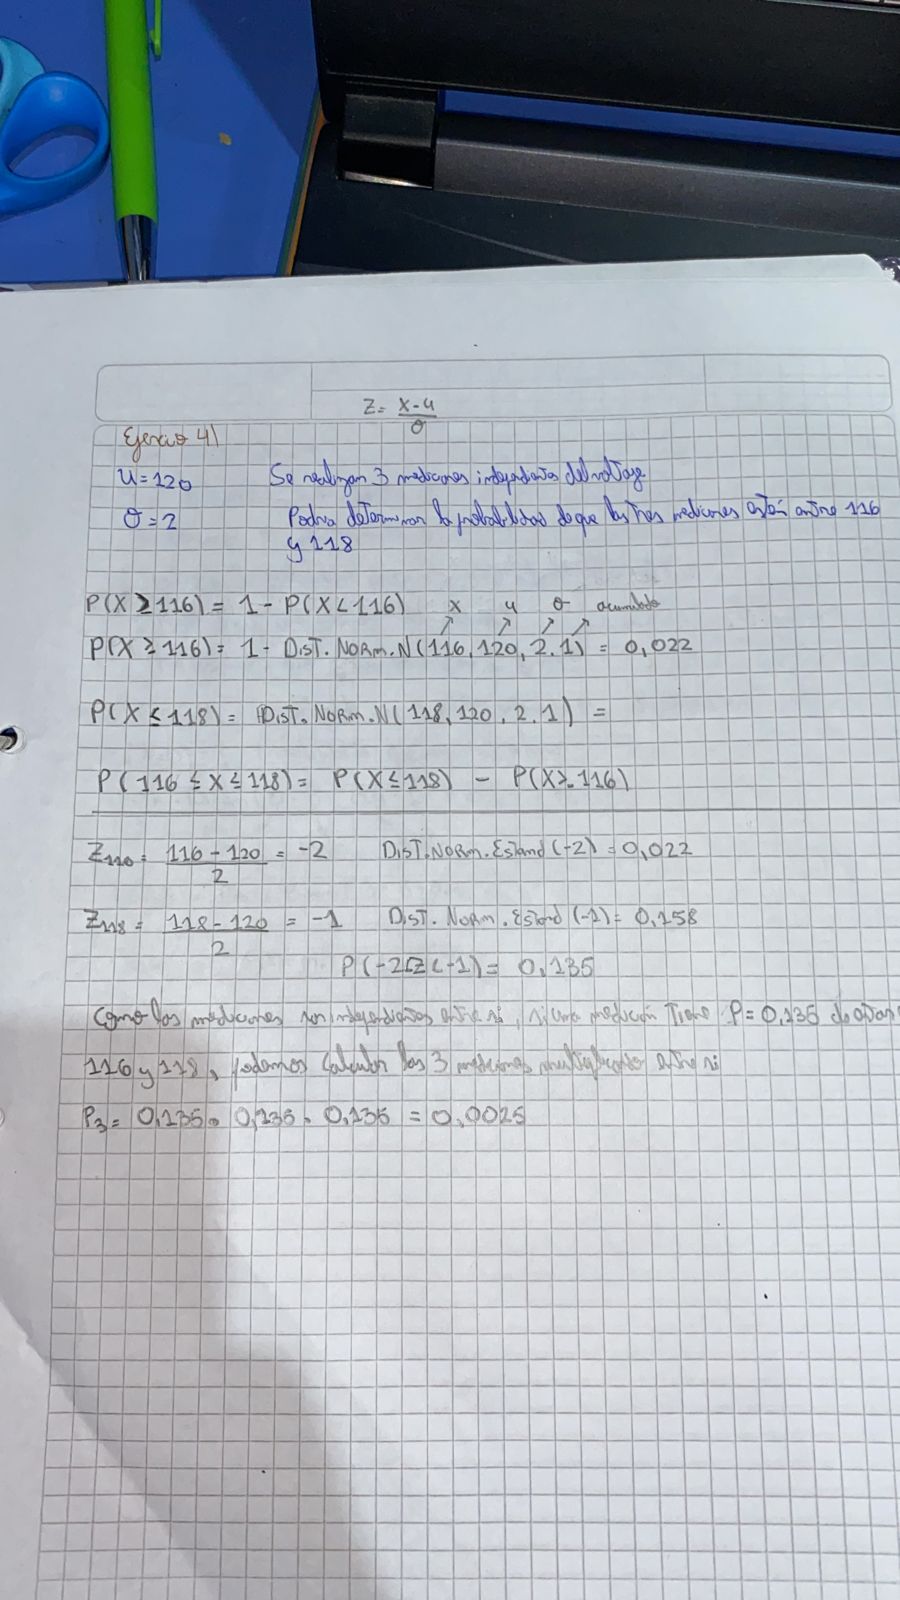 Z= X-u
σ
Ejercicio 4)
u=120 Se realizan 3 mediciones independientes del voltaje.
σ=2 Podria determinar la probabilidad de que las tres mediciones estén entre 116
y 118
P(X≥116)= 1- P(X<116) x u σ acumulado
P(X≥116)= 1- DisT. NoRm.N(116,120,2.1) = 0,022
P(X≤118)= DisT. NoRm.N(118,120,2.1) =
P(116≤X≤118)= P(X≤118) - P(X≥116)
Z110= 116-120 = -2 DisT.NoRm.Estand(-2)=0,022
2
Z118= 118-120 = -1 DisT. NoRm.Estand(-1)= 0,158
2
P(-2≤Z<-1)= 0,135
Como las mediciones son independientes entre si, si una medición Tiene P=0,135 de estar
116 y 118, podemos calcular las 3 mediciones multiplicando entre si
P3= 0,135. 0,135. 0,135 = 0,0025